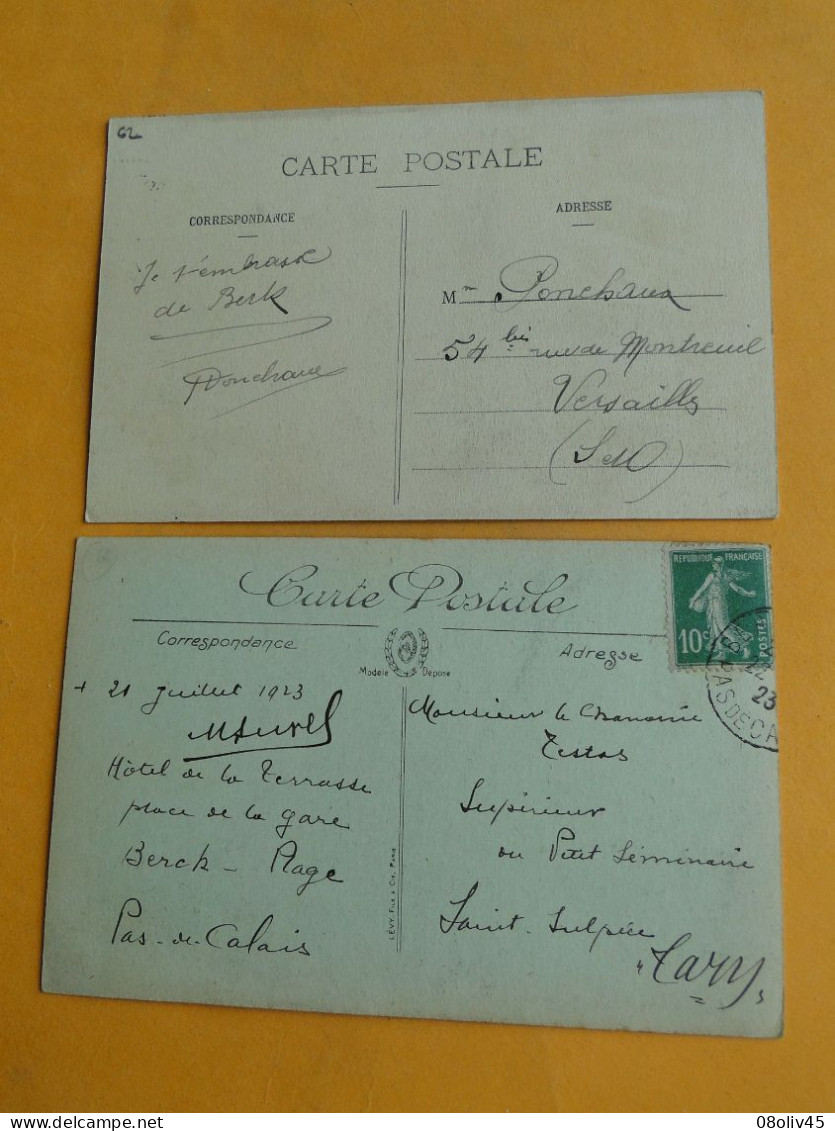 62
CARTE POSTALE
CORRESPONDANCE
ADRESSE
Je t'embrasse
de Berk
Ponchaux
Mm Ponchaux
54 bis rue de Montreuil
Versailles
(S et O)
Carte Postale
Correspondance
Modèle Déposé
Adresse
REPUBLIQUE FRANÇAISE
10c
POSTES
23
PAS DE CA
+ 21 Juillet 1923
Hôtel de la Terrasse
place de la gare
Berck - Plage
Pas-de-Calais
LÉVY FILS & Cie, PARIS
Monsieur le Chanoine
Supérieur
du Petit Séminaire
Saint-Sulpice
"Tarn"
delcampe.net
08oliv45